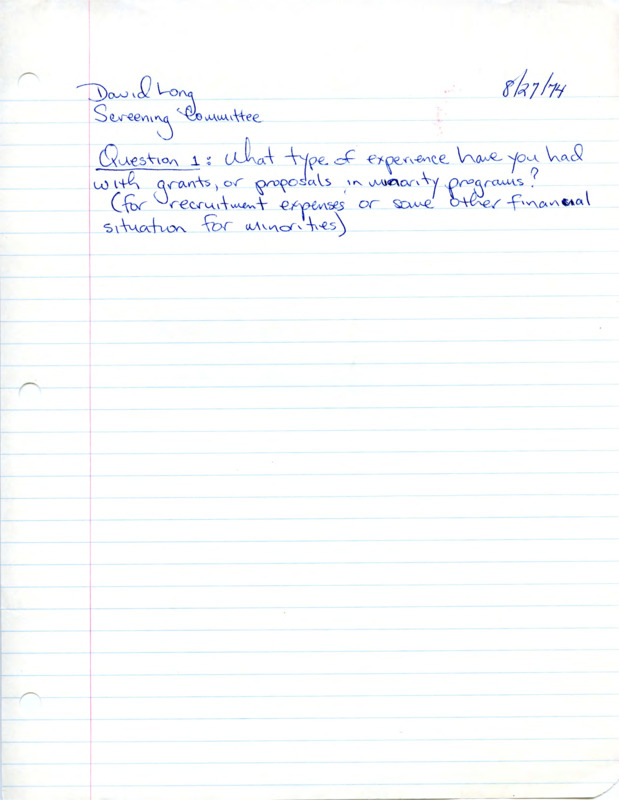 David Long
8/27/74
Screening Committee
Question 1: What type of experience have you had
with grants, or proposals in minority programs?
(for recruitment expenses or some other financial
situation for minorities)